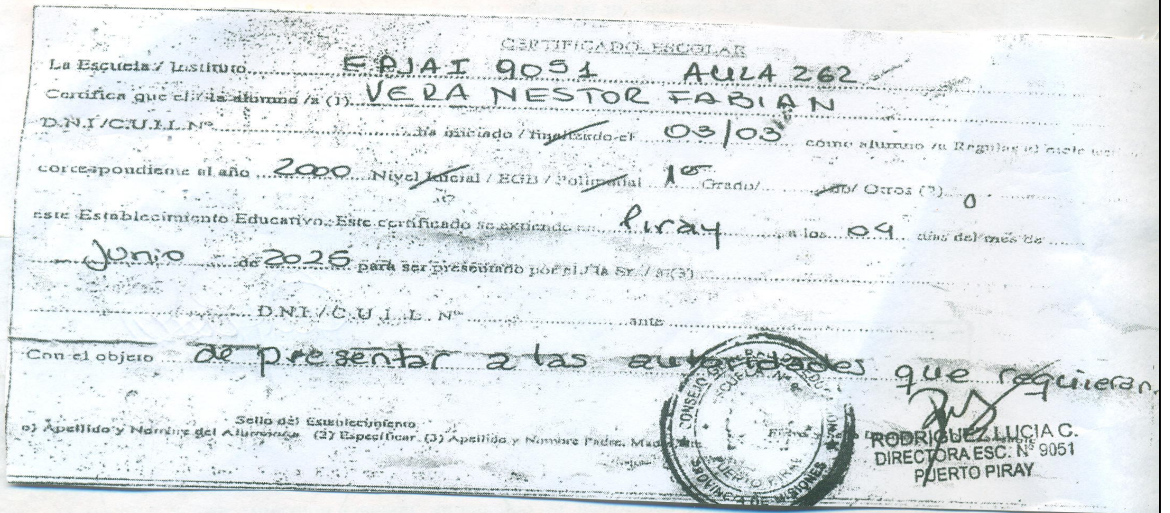 CERTIFICADO ESCOLAR
La Escuela / Instituto EPJAI 9051 AULA 262
Certifica que el / la alumno /a (1) VERA NESTOR FABIAN
D.N.I /C.U.I.L Nº ha iniciado / finalizado el 03/03 como alumno /a Regular el ciclo
correspondiente al año 2000 Nivel Inicial / EGB / Polimodal 1º Grado/ Otros (2) 0
este Establecimiento Educativo. Este certificado se extiende en Piray a los 04 días del mes de
Junio de 2025 para ser presentado por el / la Sr. / a(3)
D.N.I. / C.U.I.L. Nº ante
Con el objeto de presentar a las autoridades que requieran,
Sello del Establecimiento
Apellido y Nombre del Alumno/a (2) Especificar (3) Apellido y Nombre Padre,
CONSEJO GENERAL
ESCUELA Nº
PUERTO PIRAY
PROVINCIA DE MISIONES
RODRIGUEZ LUCIA C.
DIRECTORA ESC. Nº 9051
PUERTO PIRAY